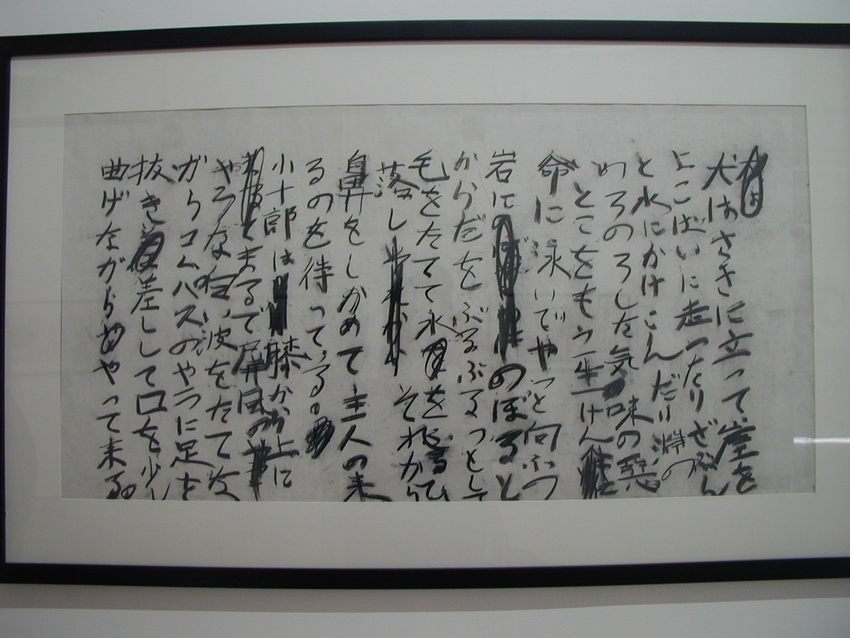 犬はさきに立って崖を
よこばいに走ったりざぶん
と水にかけこんだり淵の
のろのろした気味の悪い
とこをもう一生けん
命に泳いでやっと向ふの
岩にのぼると
からだをぶるぶるっとして
毛をたてて水をふるひ
落しそれから
鼻をしかめて主人の来
るのを待ってゐる。
小十郎は膝から上に
まるで屏風の
やうな白い波をたてな
がらコムパスのやうに足を
抜き差しして口を少し
曲げながらやって来る。